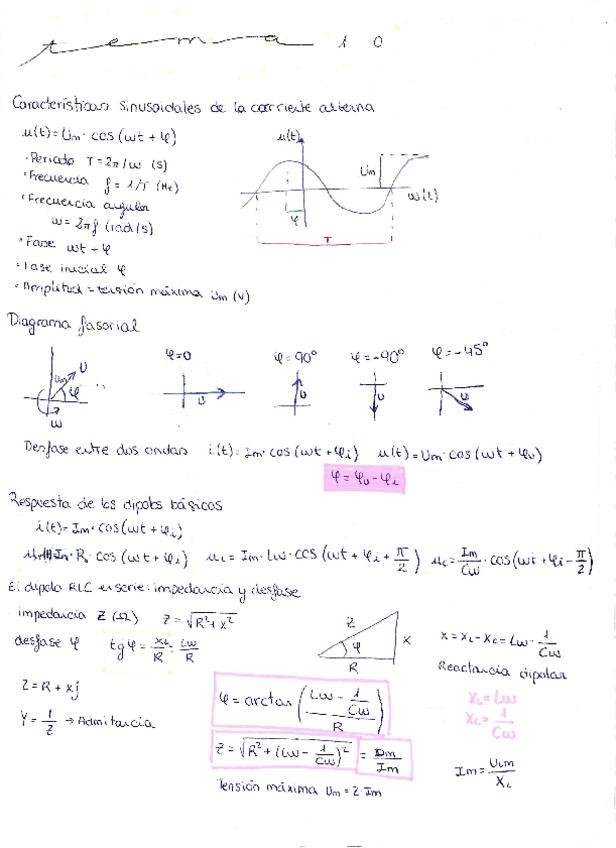 tema 10
Características sinusoidales de la corriente alterna
u(t) = Um · cos (ωt + φ)
· Periodo T = 2π/ω (s)
· Frecuencia f = 1/T (Hz)
· Frecuencia angular
ω = 2πf (rad/s)
· Fase ωt + φ
· Fase inicial φ
· Amplitud = tensión máxima Um (V)
u(t)
Um
ω(t)
φ
T
Diagrama fasorial
φ=0 φ=90° φ=-90° φ=-45°
Um U φ
ω
U U U U
Desfase entre dos ondas i(t) = Im · cos (ωt + φi) u(t) = Um · cos (ωt + φu)
φ = φu - φi
Respuesta de los dipolos básicos
i(t) = Im · cos (ωt + φi)
Im · R · cos (ωt + φi) uL = Im · Lω · cos (ωt + φi + π/2) uc = Im/Cω · cos (ωt + φi - π/2)
El dipolo RLC en serie: impedancia y desfase
impedancia Z (Ω) Z = √R² + x²
desfase φ tg φ = XL/R = Lω/R
Z φ X R
X = XL - Xc = Lω - 1/Cω
Reactancia dipolar
Z = R + xj
Y = 1/Z → Admitancia
φ = arctan ((Lω - 1/Cω)/R)
XL = Lω
Xc = 1/Cω
Z = √R² + (Lω - 1/Cω)² = Um/Im
Im = ULm/XL
Tensión máxima Um = Z · Im